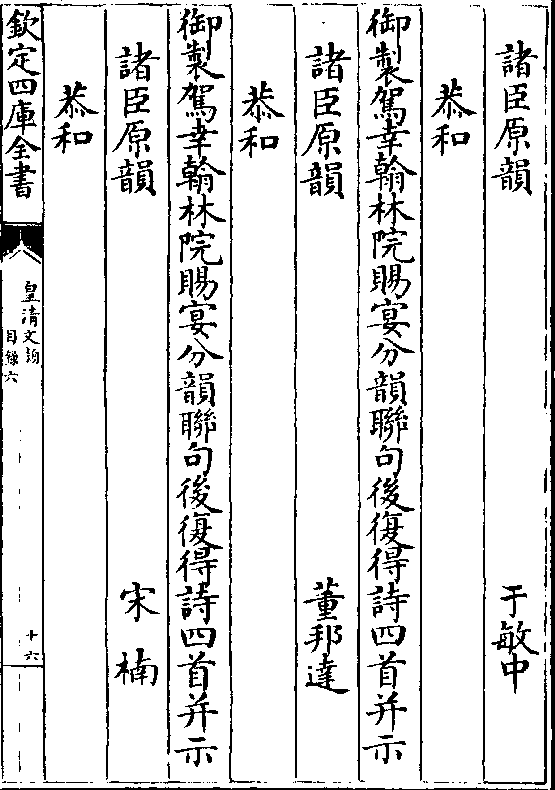 諸臣原韻 于敏中
恭和
御製駕幸翰林院賜宴分韻聯句後復得詩四首并示
諸臣原韻 董邦達
恭和
御製駕幸翰林院賜宴分韻聯句後復得詩四首并示
諸臣原韻 宋楠
恭和
欽定四庫全書
皇清文頴
目錄六
十六